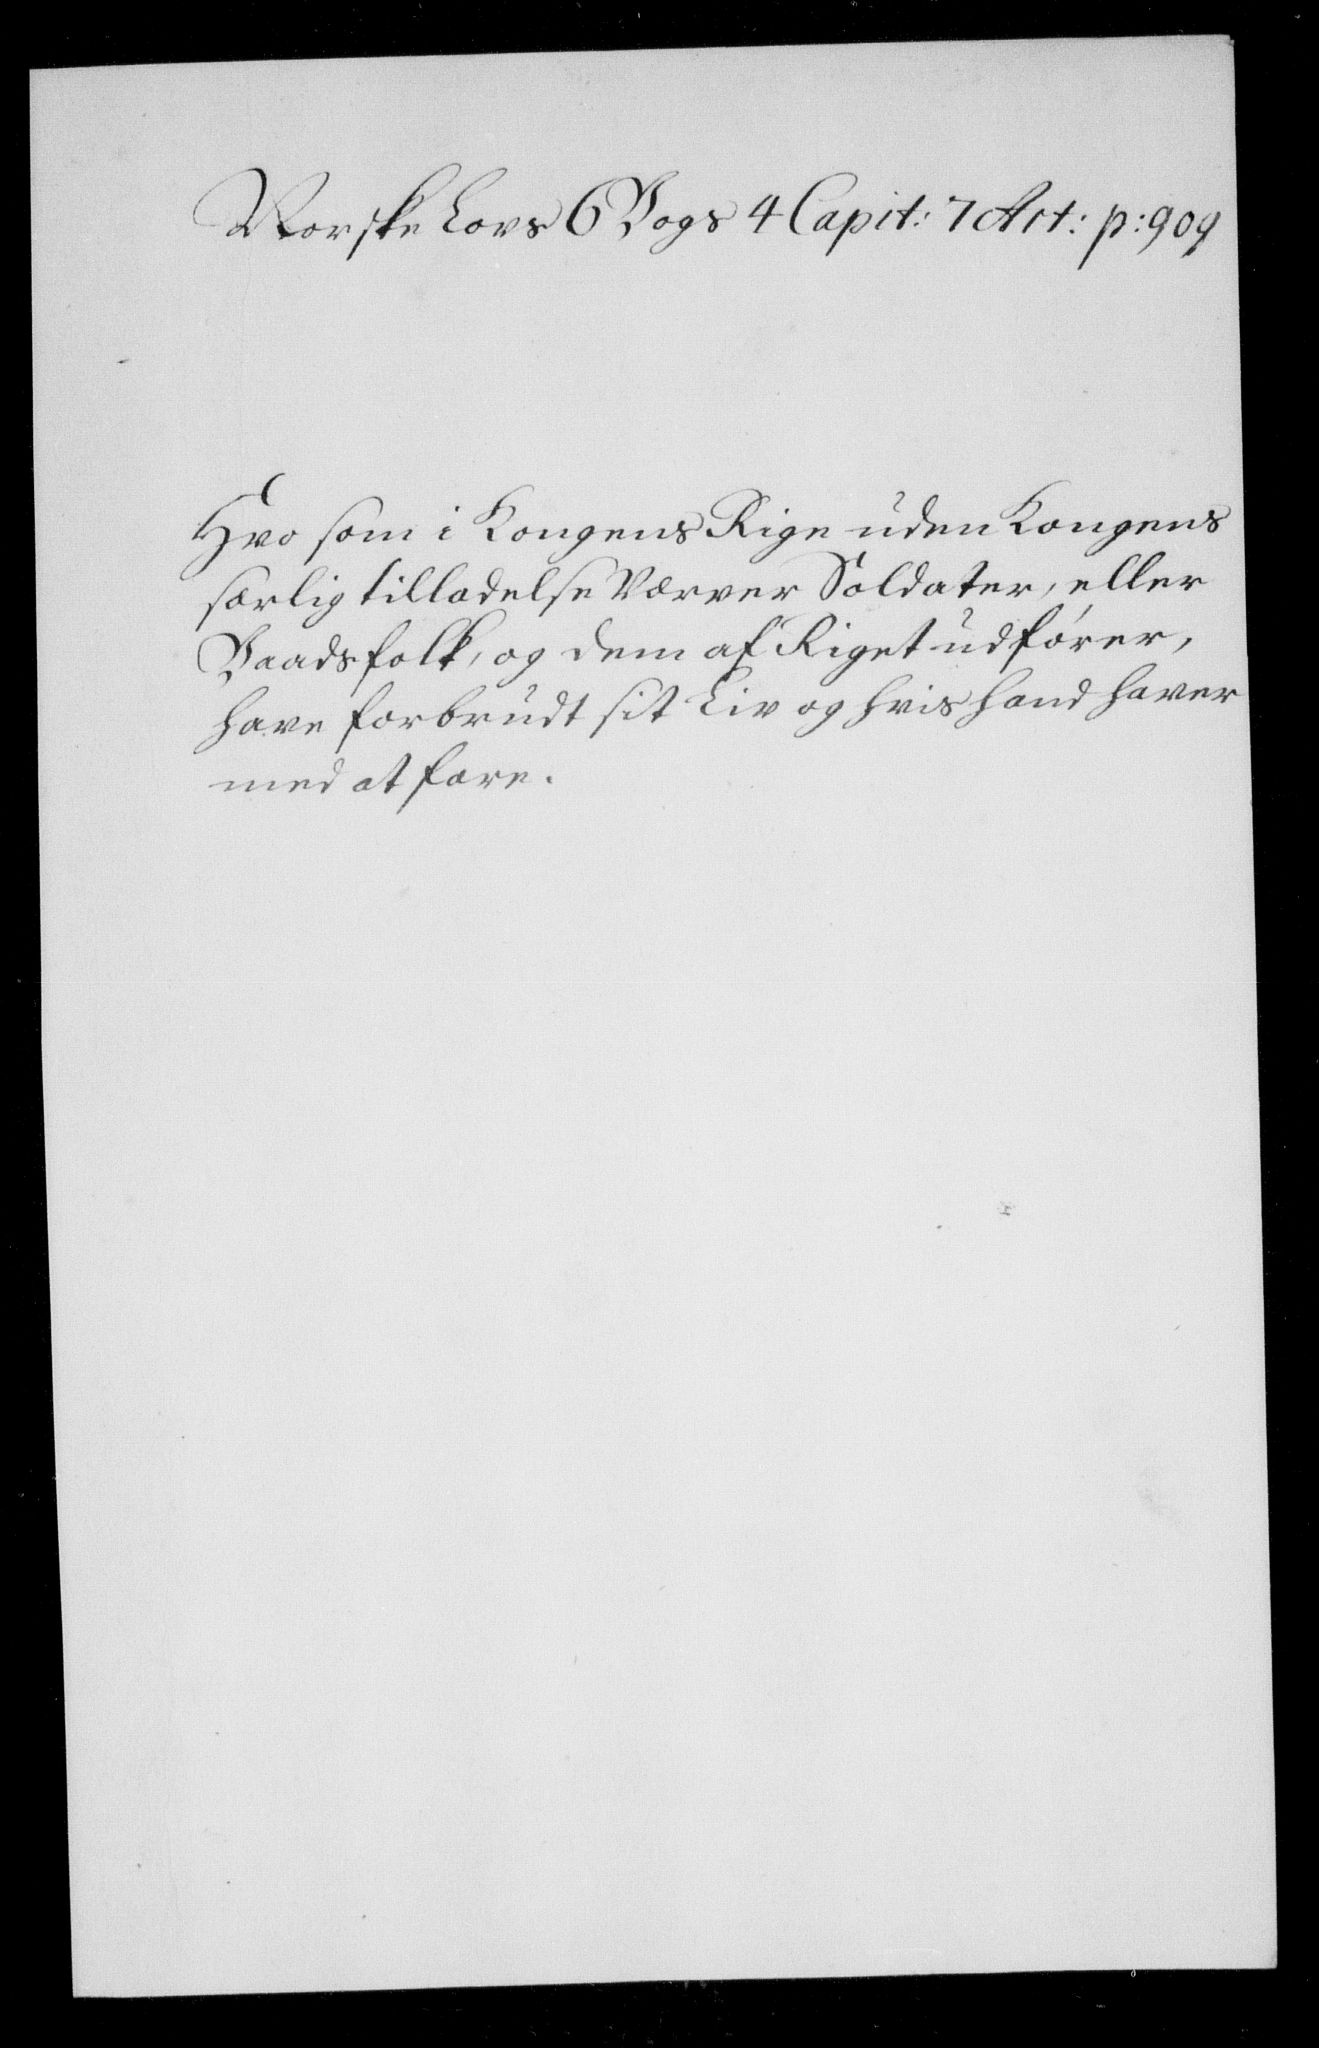 Norske Lovs 6 Bogs 4 Capit: 7 Art: p: 909
Hvo som i Kongens Rige uden Kongens
særlig tilladelse Værver Soldater, eller
Baadsfolk, og dem af Riget udfører,
have forbrudt sit Liv og hvis hand haver
med at fare.